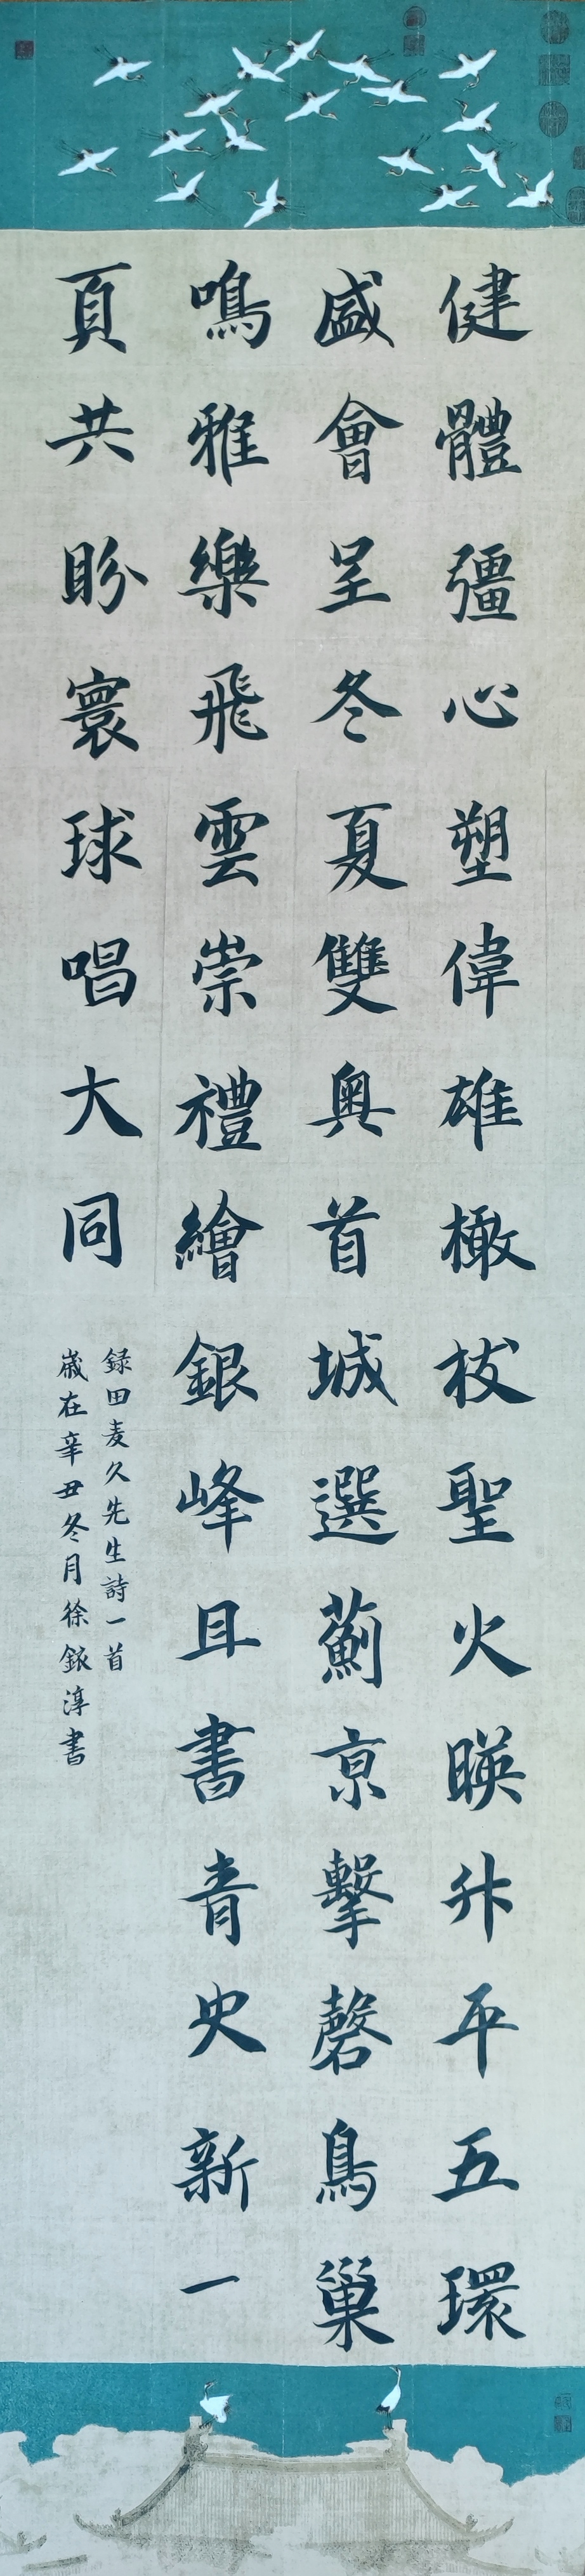 健體彊心塑偉雄橄枝聖火暎升平五環
盛會呈冬夏雙奧首城選薊京擊磬鳥巢
鳴雅樂飛雲崇禮繪銀峰且書青史新一
頁共盼寰球唱大同
録田麦久先生詩一首
歲在辛丑冬月徐銥淳書